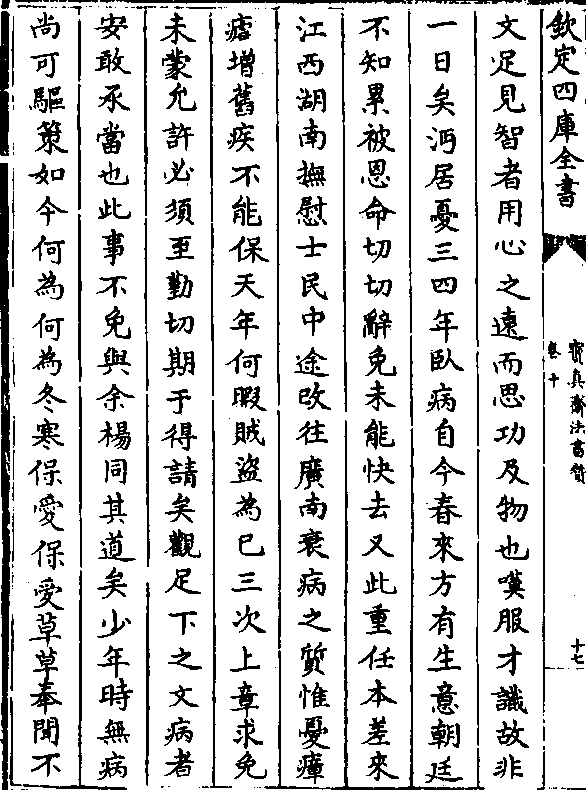 欽定四庫全書
寶真齋法書贊
卷十
十七
文足見智者用心之遠而思功及物也嘆服才識故非
一日矣沔居憂三四年臥病自今春來方有生意朝廷
不知累被恩命切切辭免未能快去又此重任本差來
江西湖南撫慰士民中途改往廣南衰病之質惟憂瘴
癘增舊疾不能保天年何暇賊盜為已三次上章求免
未蒙允許必須至勤切期于得請矣觀足下之文病者
安敢承當也此事不免與余楊同其道矣少年時無病
尚可驅策如今何為何為冬寒保愛保愛草草奉聞不